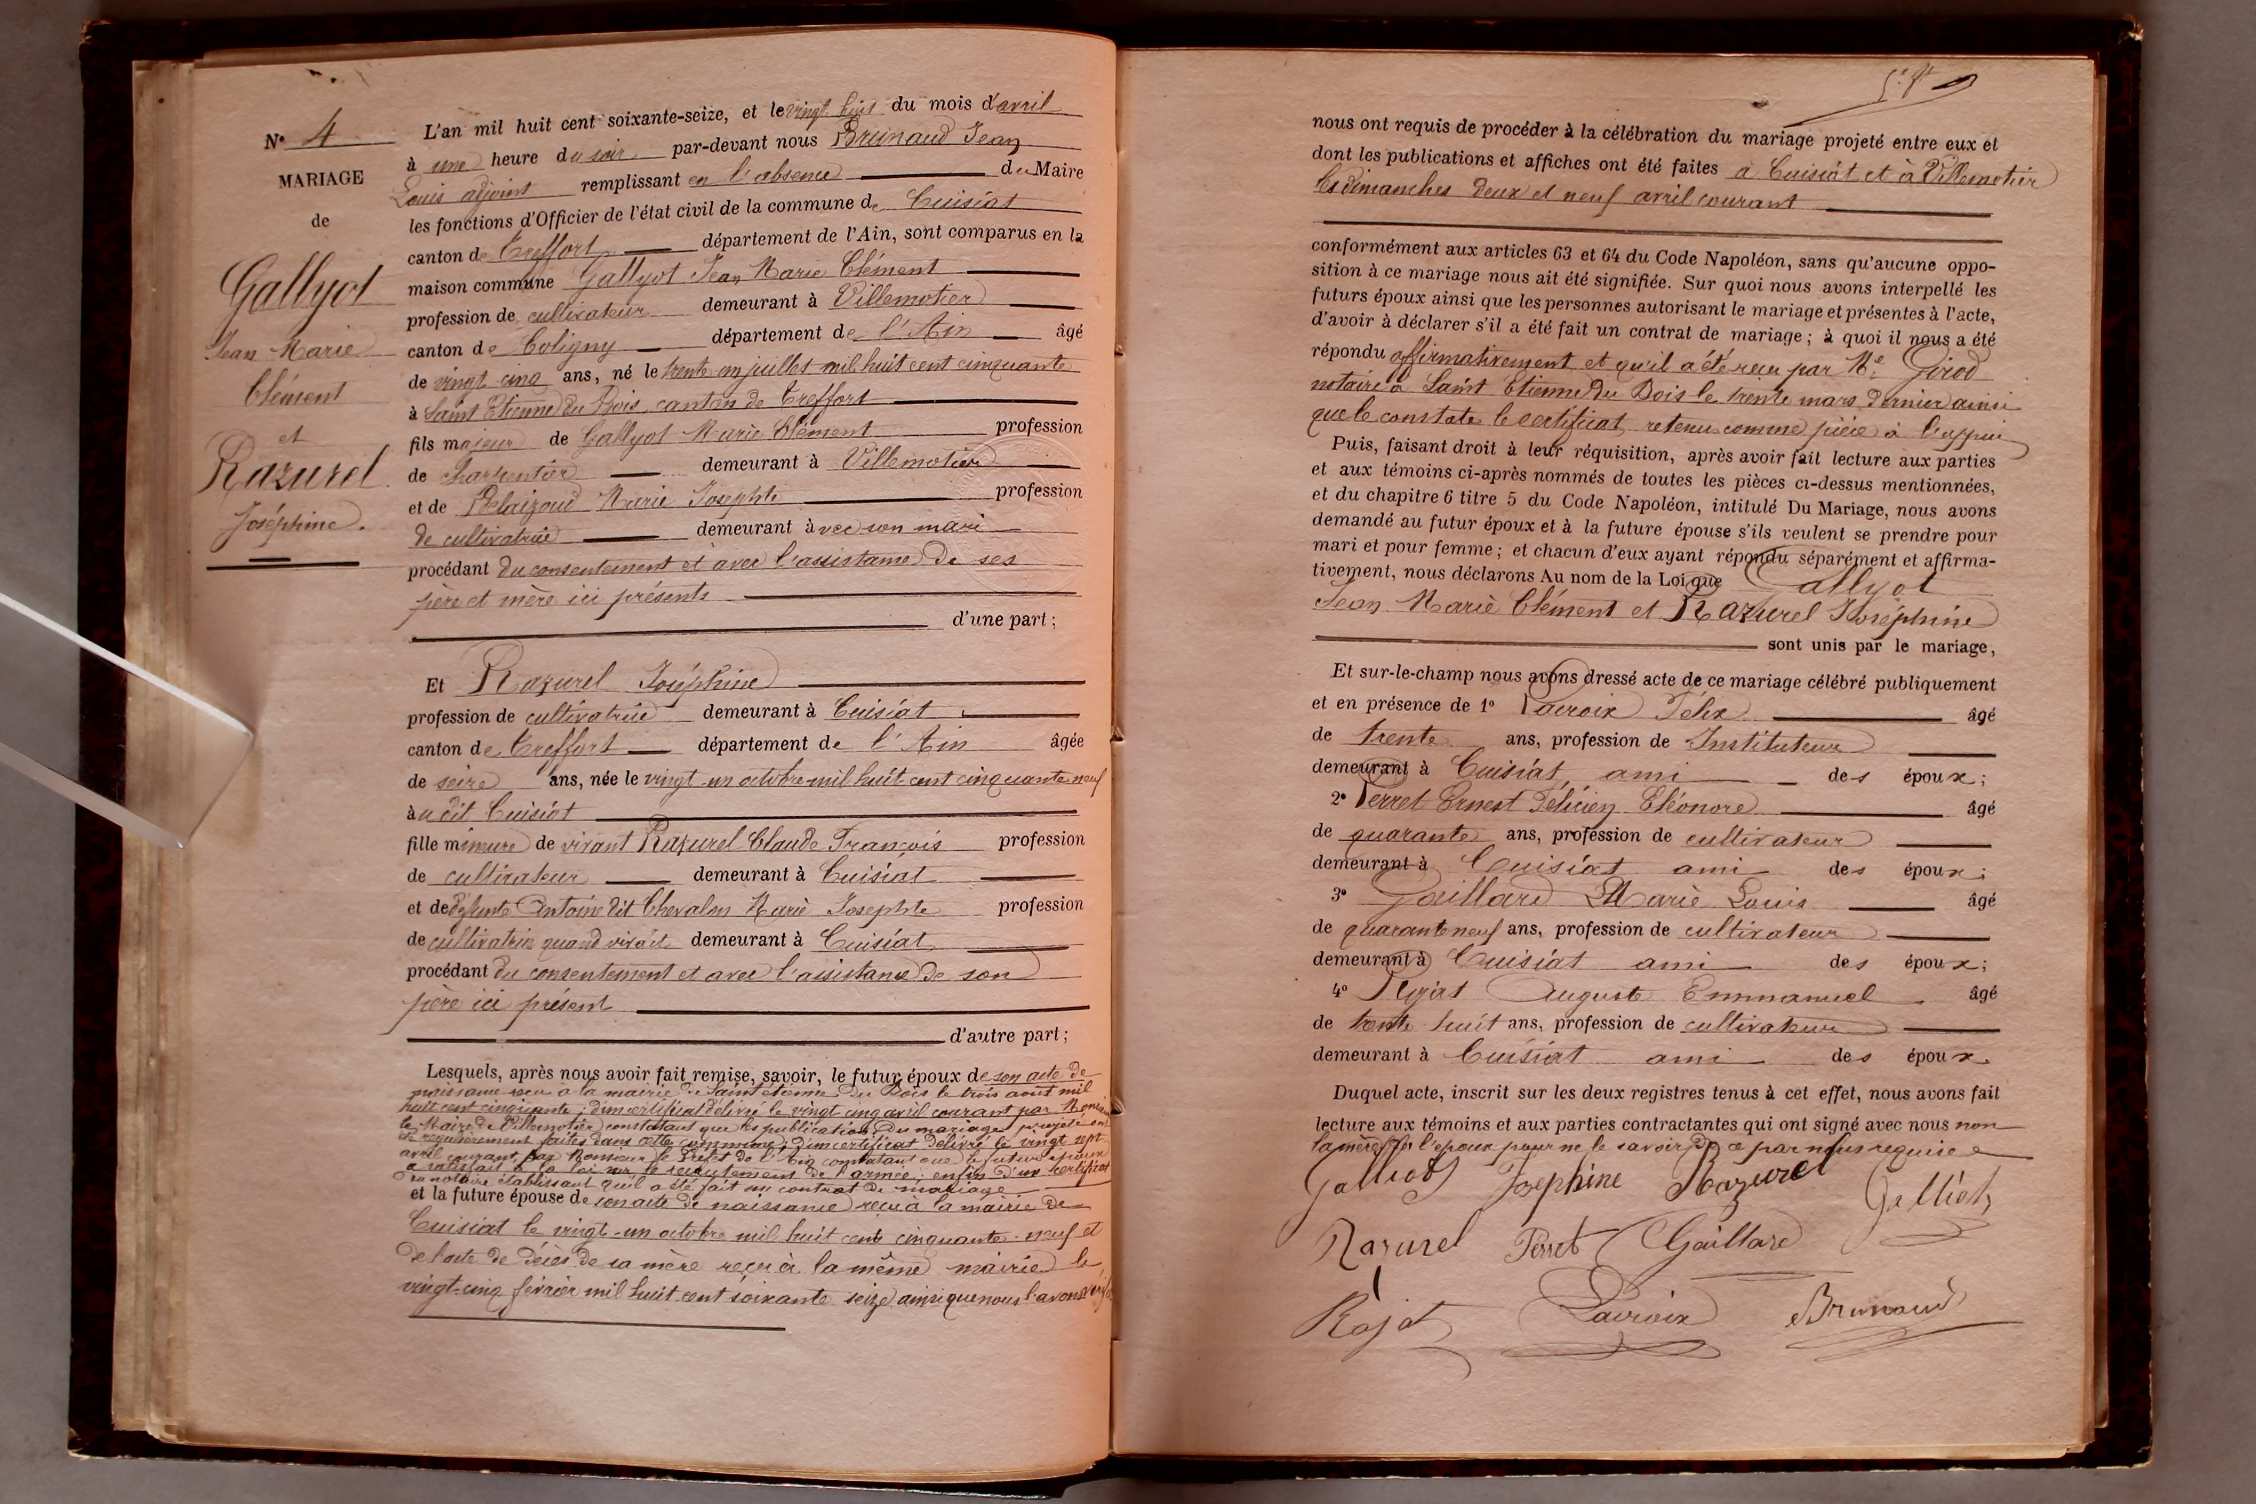 N° 4
MARIAGE
de
Gallyot
Jean Marie
Clément
et
Razurel
Joséphine.
L'an mil huit cent soixante-seize, et le vingt huit du mois d'avril
à une heure du soir par-devant nous Brunaud Jean
Louis adjoint remplissant en l'absence du Maire
les fonctions d'Officier de l'état civil de la commune de Cuisiat
canton de Treffort département de l'Ain, sont comparus en la
maison commune Gallyot Jean Marie Clément
profession de cultivateur demeurant à Villemotier
canton de Coligny département de l'Ain âgé
de vingt cinq ans, né le trente un juillet mil huit cent cinquante
à Saint Etienne du Bois canton de Treffort
fils majeur de Gallyot Marie Clément profession
de charpentier demeurant à Villemotier
et de Marie Josephte profession
de cultivatrice demeurant avec son mari
procédant du consentement et avec l'assistance de ses
père et mère ici présents
d'une part ;
Et Razurel Joséphine
profession de cultivatrice demeurant à Cuisiat
canton de Treffort département de l'Ain âgée
de seize ans, née le vingt-un octobre mil huit cent cinquante neuf
audit Cuisiat
fille mineure de vivant Razurel Claude François profession
de cultivateur demeurant à Cuisiat
et de défunte Antoine dit Chevalon Marie Josephte profession
de cultivatrice quand vivait demeurant à Cuisiat
procédant du consentement et avec l'assistance de son
père ici présent
d'autre part ;
Lesquels, après nous avoir fait remise, savoir, le futur époux de son acte de
naissance reçu à la mairie de Saint étienne du Bois le trois août mil
huit cent cinquante ; d'un certificat délivré le vingt cinq avril courant par Monsieur
le Maire de Villemotier constatant que les publications du mariage projeté ont
été régulièrement faites dans cette commune ; d'un certificat délivré le vingt sept
avril courant par Monsieur le Préfet de l'Ain constatant que le futur époux
a satisfait à la loi sur le recrutement de l'armée ; enfin d'un certificat
du notaire établissant qu'il a été fait un contrat de mariage
et la future épouse de son acte de naissance reçu à la mairie de
Cuisiat le vingt-un octobre mil huit cent cinquante-neuf et
de l'acte de décès de sa mère reçu à la même mairie le
vingt-cinq février mil huit cent soixante seize ainsi que nous l'avons vérifié
nous ont requis de procéder à la célébration du mariage projeté entre eux et
dont les publications et affiches ont été faites à Cuisiat et à Villemotier
les dimanches deux et neuf avril courant
conformément aux articles 63 et 64 du Code Napoléon, sans qu'aucune oppo-
sition à ce mariage nous ait été signifiée. Sur quoi nous avons interpellé les
futurs époux ainsi que les personnes autorisant le mariage et présentes à l'acte,
d'avoir à déclarer s'il a été fait un contrat de mariage ; à quoi il nous a été
répondu affirmativement et qu'il a été reçu par Me Girod
notaire à Saint Etienne du Bois le trente mars dernier ainsi
que le constate le certificat retenu comme pièce à l'appui
Puis, faisant droit à leur réquisition, après avoir fait lecture aux parties
et aux témoins ci-après nommés de toutes les pièces ci-dessus mentionnées,
et du chapitre 6 titre 5 du Code Napoléon, intitulé Du Mariage, nous avons
demandé au futur époux et à la future épouse s'ils veulent se prendre pour
mari et pour femme ; et chacun d'eux ayant répondu séparément et affirma-
tivement, nous déclarons Au nom de la Loi que Gallyot
Jean Marie Clément et Razurel Joséphine
sont unis par le mariage,
Et sur-le-champ nous avons dressé acte de ce mariage célébré publiquement
et en présence de 1° Lacroix Félix âgé
de trente ans, profession de Instituteur
demeurant à Cuisiat ami des époux ;
2° Perret Ernest Félicien Eléonore âgé
de quarante ans, profession de cultivateur
demeurant à Cuisiat ami des époux ;
3° Gaillard Marie Louis âgé
de quarante neuf ans, profession de cultivateur
demeurant à Cuisiat ami des époux ;
4° Auguste Emmanuel âgé
de trente huit ans, profession de cultivateur
demeurant à Cuisiat ami des époux.
Duquel acte, inscrit sur les deux registres tenus à cet effet, nous avons fait
lecture aux témoins et aux parties contractantes qui ont signé avec nous non
la mère de l'époux pour ne le savoir de ce par nous requise
Galliot Josephine Razurel Galliot
Razurel Perret Gaillard
Rojat Lacroix Brunaud